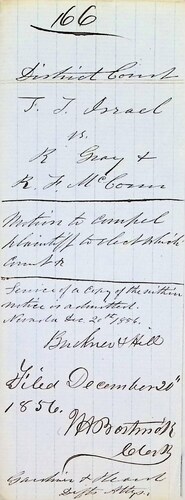 166
District Court
T. T. Israel
vs.
R Gray &
R. F. McConn
Motion to compel
plaintiff to elect which
Count &
Service of a Copy of the within
notice is admitted.
Nevada Dec 20th 1856.
Buckner & Hill
Filed December 20th
1856.
Clerk
Gardiner &
Defts Attys